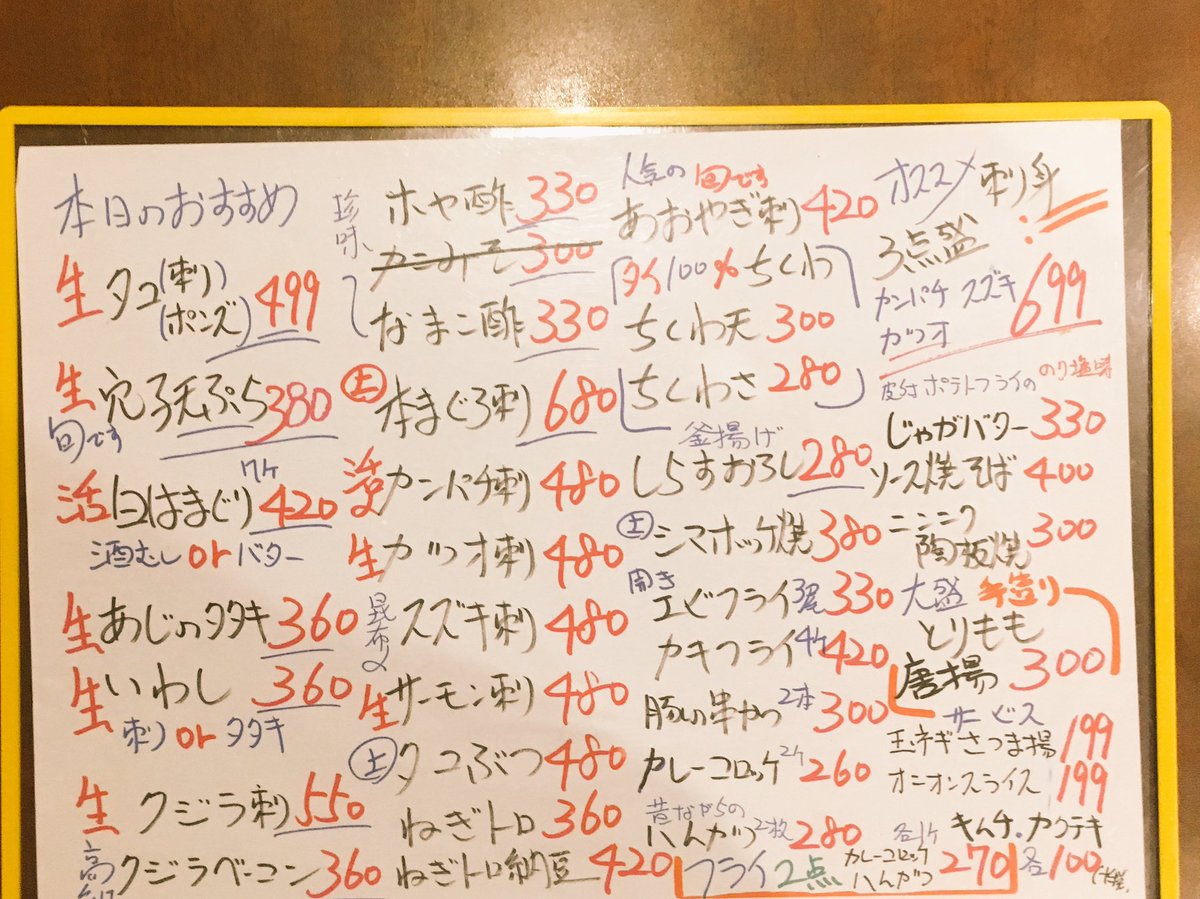 本日のおすすめ
生 タコ(刺)(ポンズ) 499
生 穴子天ぷら 380
旬です
7ケ
活 白はまぐり 420
酒むし or バター
生 あじのタタキ 360
生 いわし 360
刺 or タタキ
生 クジラ刺 550
クジラベーコン 360
珍味
ホヤ酢 330
カニみそ 300
なまこ酢 330
上 本まぐろ刺 680
活〆 カンパチ刺 480
生 カツオ刺 480
昆布〆 スズキ刺 480
生 サーモン刺 480
上 タコぶつ 480
ねぎトロ 360
ねぎトロ納豆 420
人気の 旬です
あおやぎ刺 420
タイ100%ちくわ
ちくわ天 300
ちくわさ 280
釜揚げ
しらすおろし 280
上 シマホッケ焼 380
開き
エビフライ 3尾 330
カキフライ 4ケ 420
豚しそ串かつ 2本 300
カレーコロッケ 2ケ 260
昔ながらの
ハムカツ 2枚 280
フライ2点 カレーコロッケ ハムカツ 各1ケ 270
オススメ刺身
3点盛
カンパチ スズキ
カツオ 699
皮付ポテトフライの のり塩味
じゃがバター 330
ソース焼そば 400
ニンニク
陶板焼 300
大盛 手造り
とりもも
唐揚 300
サービス
玉ネギさつま揚 199
オニオンスライス 199
キムチ・カクテキ
各100